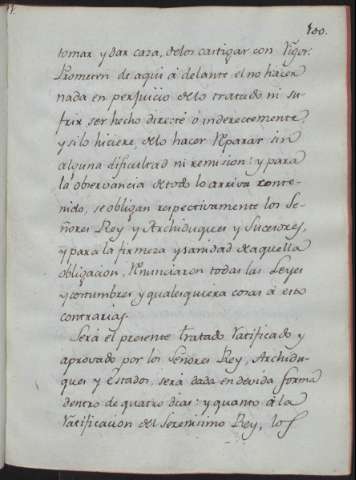 100.
tomar y dar caza, de los castigar con Rigor.
Prometen de aqui á delante el no hacer
nada en perjuicio de lo tratado ni su-
frir ser hecho directé ó inderectemente,
y si lo hiciere, de lo hacer Reparar sin
alguna dificultad ni remision: y para
la obervancia de todo lo arriva conte-
nido, se obligan respectivamente los Se-
ñores Rey y Archiduques y Sucesores,
y para la firmeza y sanidad de aquella
obligacion, Renunciaron todas las Leyes
y costumbres y qualesquiera cosas á esto
contrarias.
Será el presente tratado Ratificado y
aprovado por los Señores Rey, Archidu-
ques y Estados, será dada en devida forma
dentro de quatro dias: y quanto á la
Ratificacion del Serenisimo Rey, los